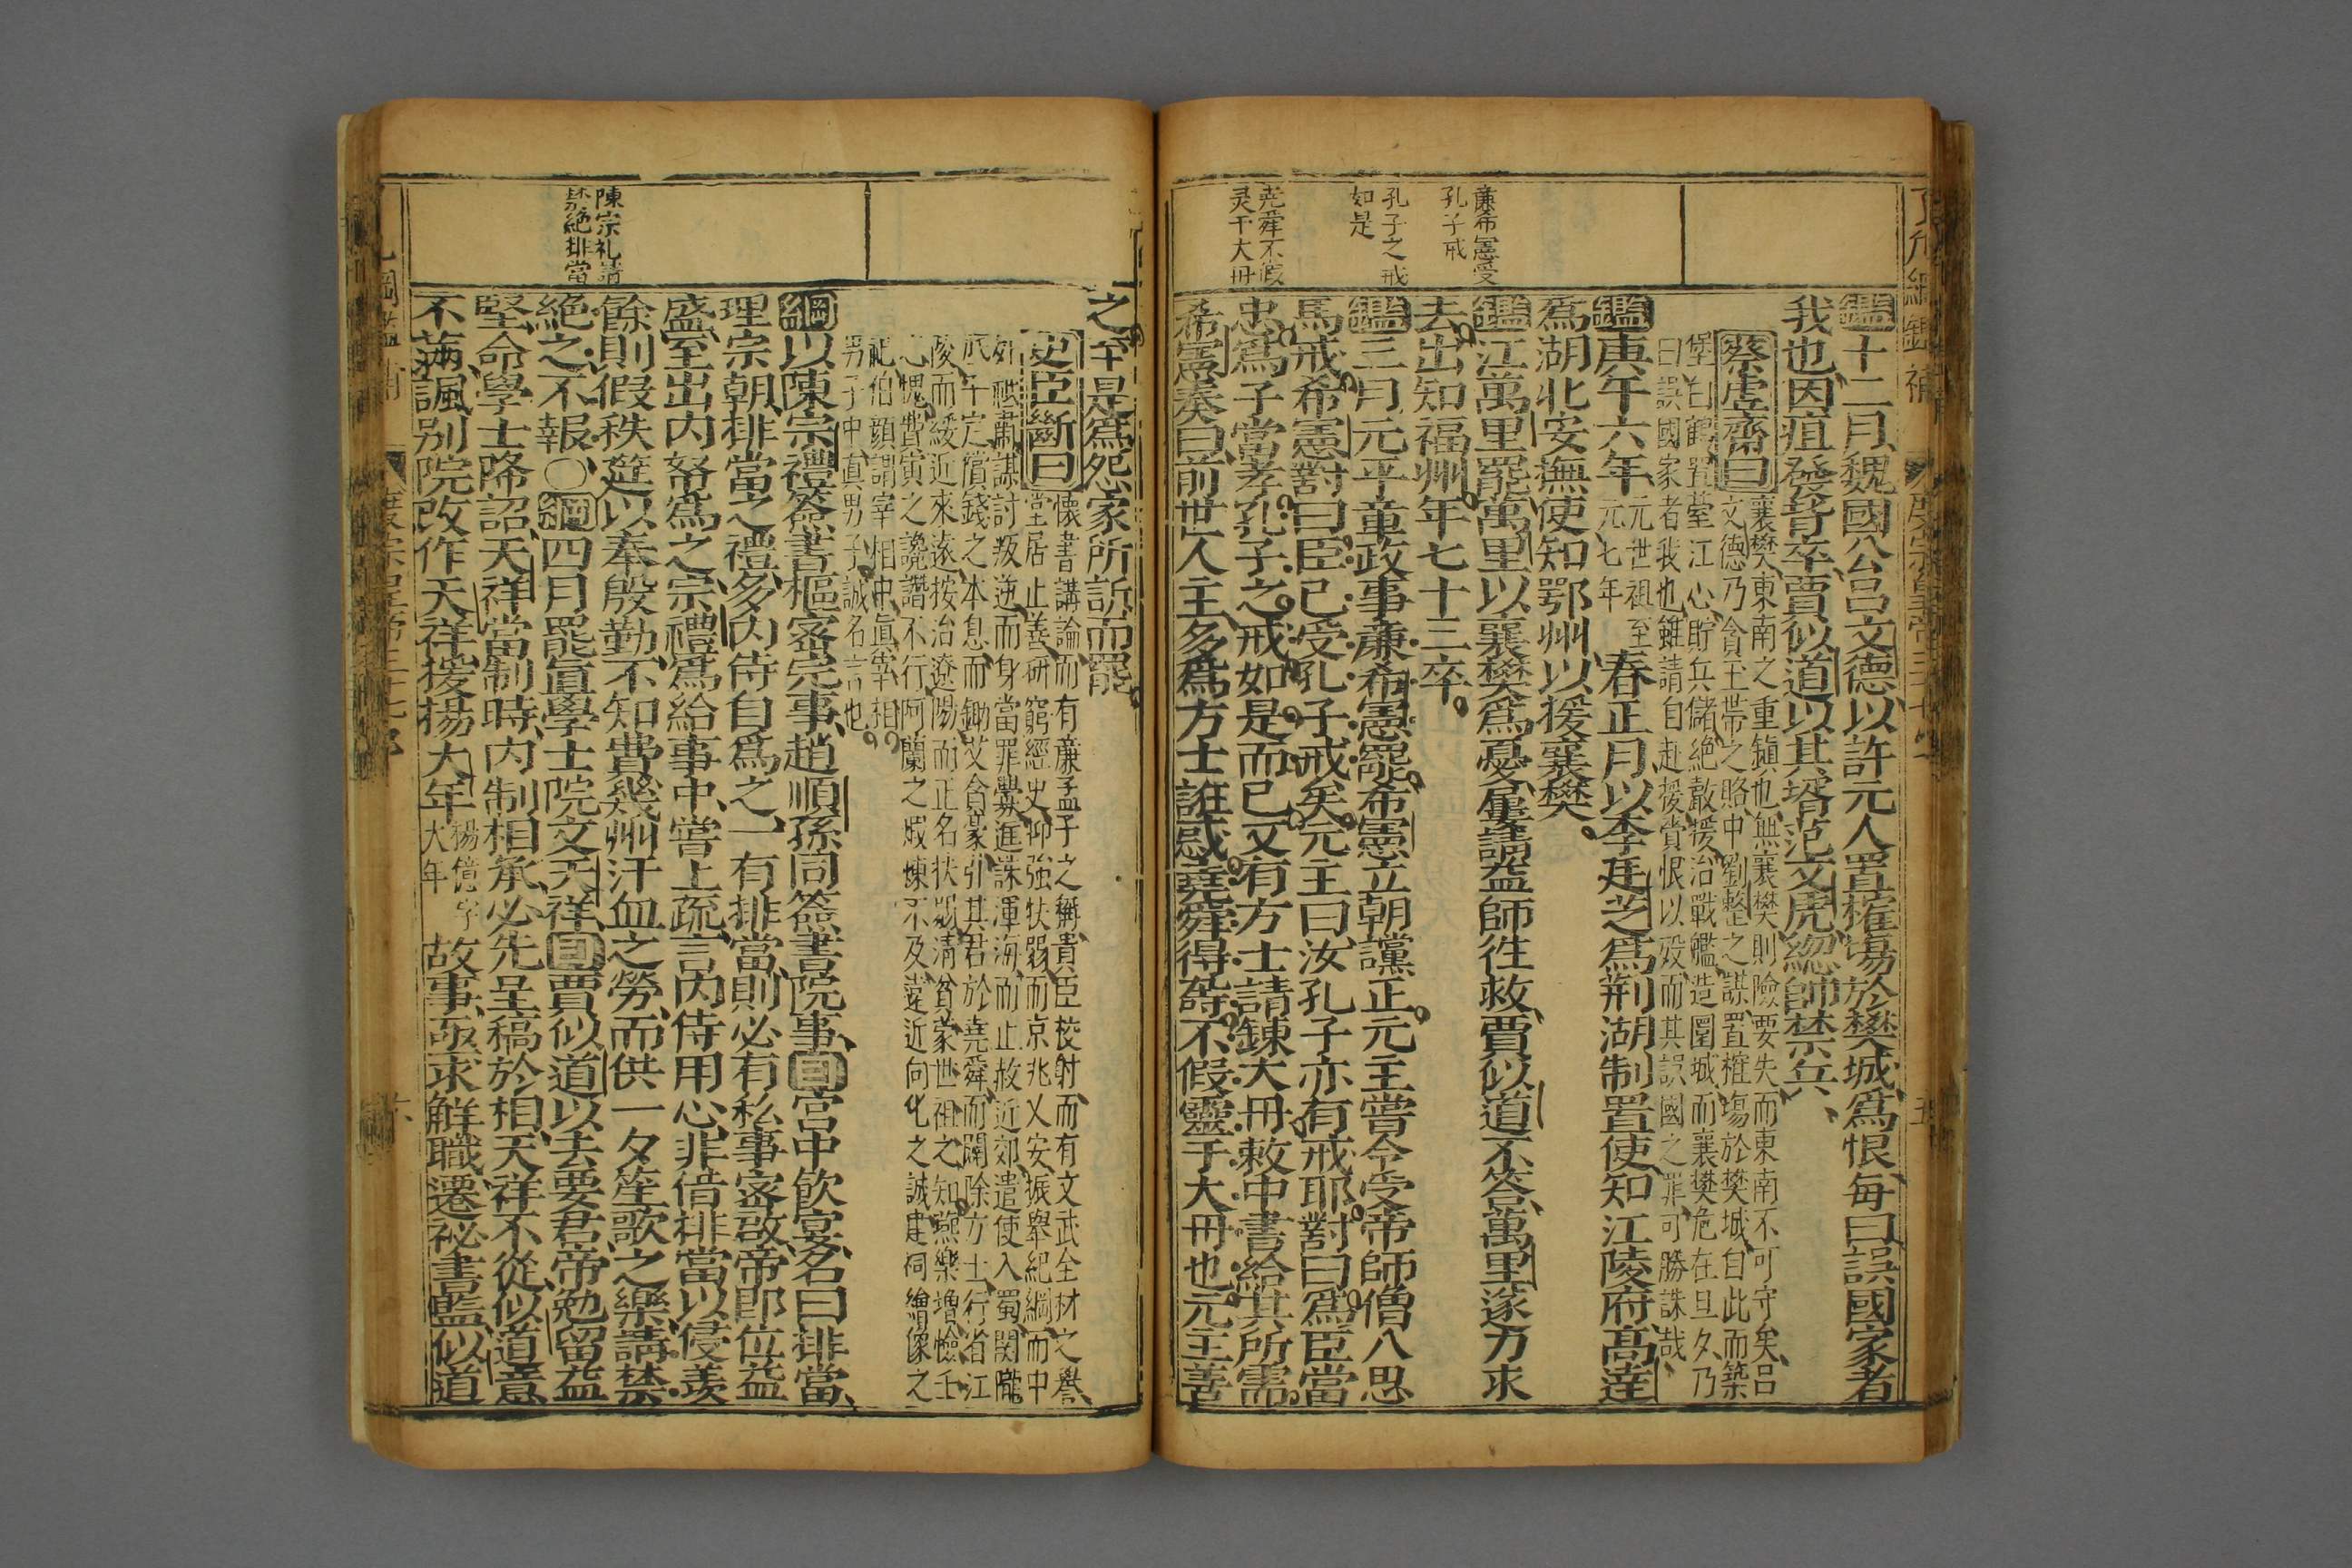 廉希憲受
孔子戒
孔子之戒
如是
堯舜不假
灵于大冊
鑑十二月魏國公呂文德以許元人置榷場於樊城爲恨每曰誤國家者
我也因疽發背卒賈似道以其壻范文虎總師禁兵
蔡虛齋曰襄樊東南之重鎮也無襄樊則險要失而東南不可守矣呂
文德乃貪玉帶之賂中劉整之謀置榷場於樊城自此而築
堡白鶴置臺江心貯兵儲絶敵援治戰艦造圍城而襄樊危在旦夕乃
曰誤國家者我也雖請自赴援賫恨以殁而其誤國之罪可勝誅哉
鑑庚午六年元世祖至
元七年春正月以李廷芝爲荆湖制置使知江陵府高達
爲湖北安撫使知鄂州以援襄樊
鑑江萬里罷萬里以襄樊爲憂屢請益師徃救賈似道不答萬里遂力求
去出知福州年七十三卒
鑑三月元平章政事廉希憲罷希憲立朝讜正元主嘗令受帝師僧八思
馬戒希憲對曰臣已受孔子戒矣元主曰汝孔子亦有戒耶對曰爲臣當
忠爲子當孝孔子之戒如是而已又有方士請鍊大冊敕中書給其所需
希憲奏曰前世人主多爲方士誑惑堯舜得壽不假靈于大冊也元主善
之至是爲怨家所訴而罷
史臣斷曰懷書講論而有廉孟子之稱貴臣校射而有文武全材之譽
堂居止善研窮經史抑強扶弱而京兆乂安振舉紀綱而中
外祇肅謀討叛逆而身當罪釁進誅渾海而止赦近郊遣使入蜀関隴
底平定償錢之本息而鋤艾貪豪引其君於堯舜而闢除方士行省江
陵而綏近來遠按治遼陽而正名扶惕清貧蒙世祖之知燕樂增憸壬
之愧費寅之讒譖不行阿蘭之威悚不及薳近向化之誠建祠繪像之
祀伯顔謂宰相中眞宰相
男子中真男子誠名言也
陳宗礼請
禁絶排當
綱以陳宗禮簽書樞密院事趙順孫同簽書院事目宮中飲宴名曰排當
理宗朝排當之禮多内侍自爲之一有排當則必有私事密啟帝即位益
盛至出内帑爲之宗禮爲給事中嘗上疏言内侍用心非借排當以侵羡
餘則假秩筵以奉殷勤不知費幾州汗血之勞而供一夕笙歌之樂請禁
絶之不報○綱四月罷直學士院文天祥目賈似道以去要君帝勉留益
堅命學士降詔天祥當制時内制相承必先呈稿於相天祥不從似道意
不滿諷别院改作天祥援揚大年揚億字
大年故事亟求解職遷祕書監似道